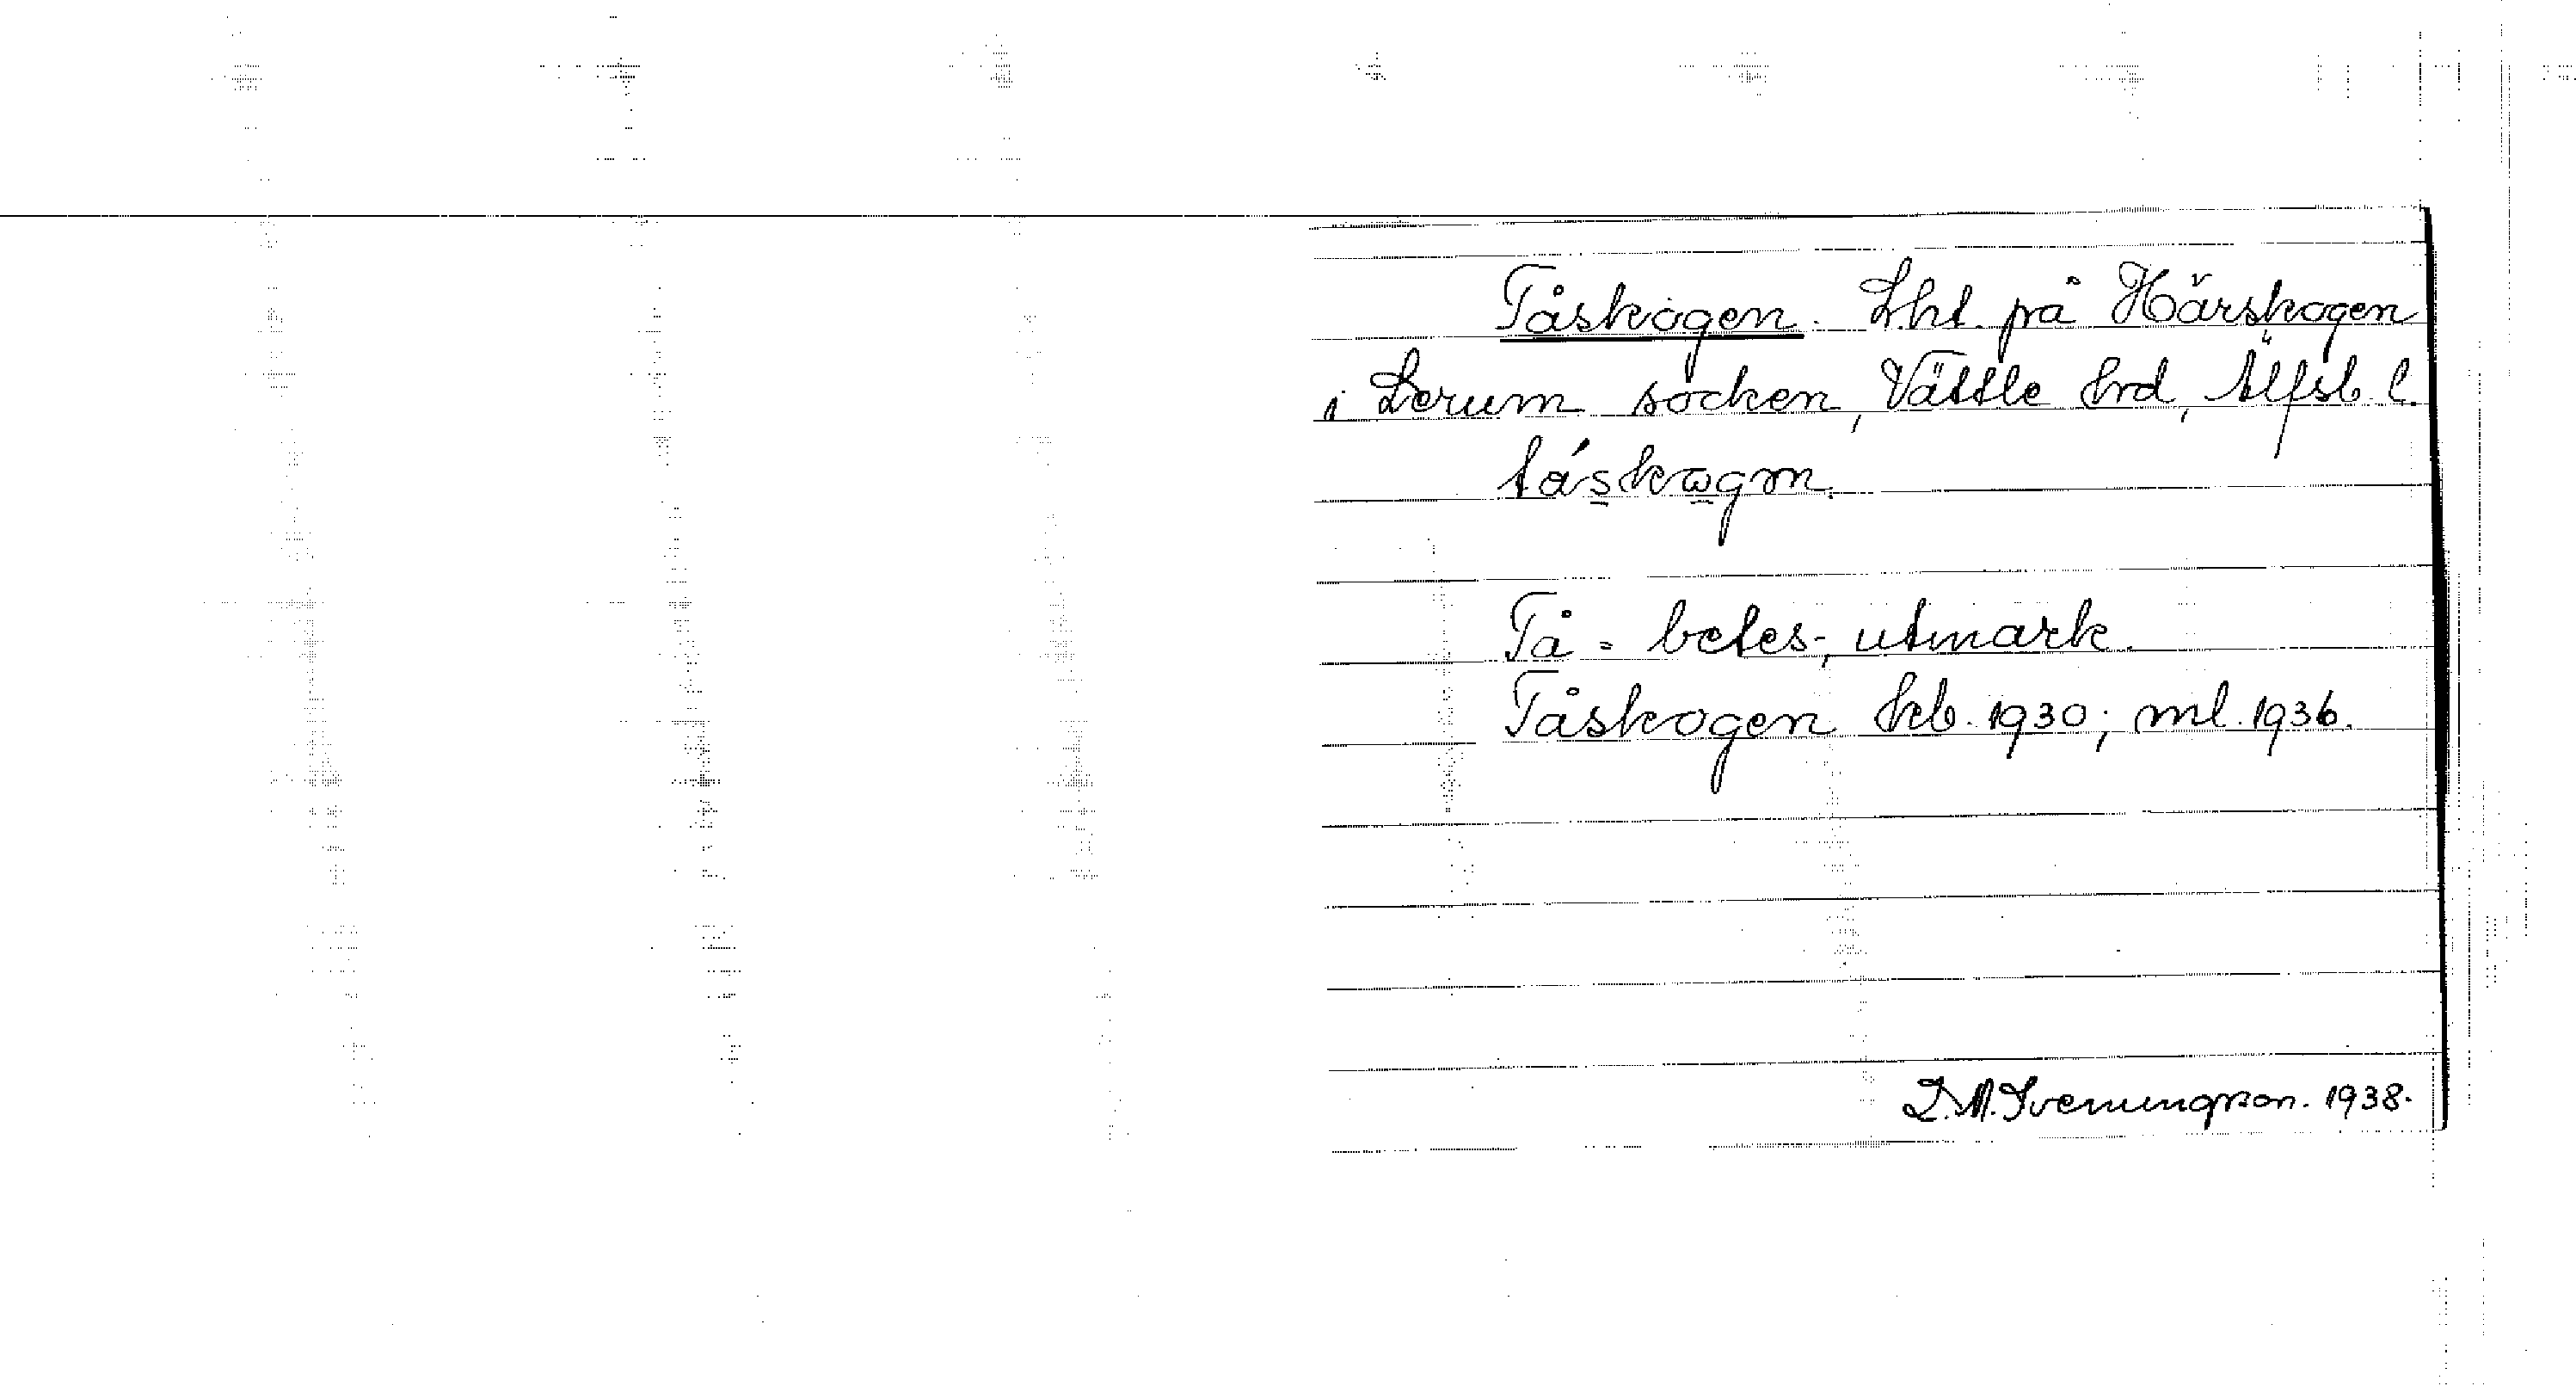 Tåskogen. Lht på Härskogen
i Lerum socken, Vättle hrd, Älfsb. l.
táskωgm.
Tå = betes-, utmark.
Tåskogen kb. 1930; ml. 1936.
1938.